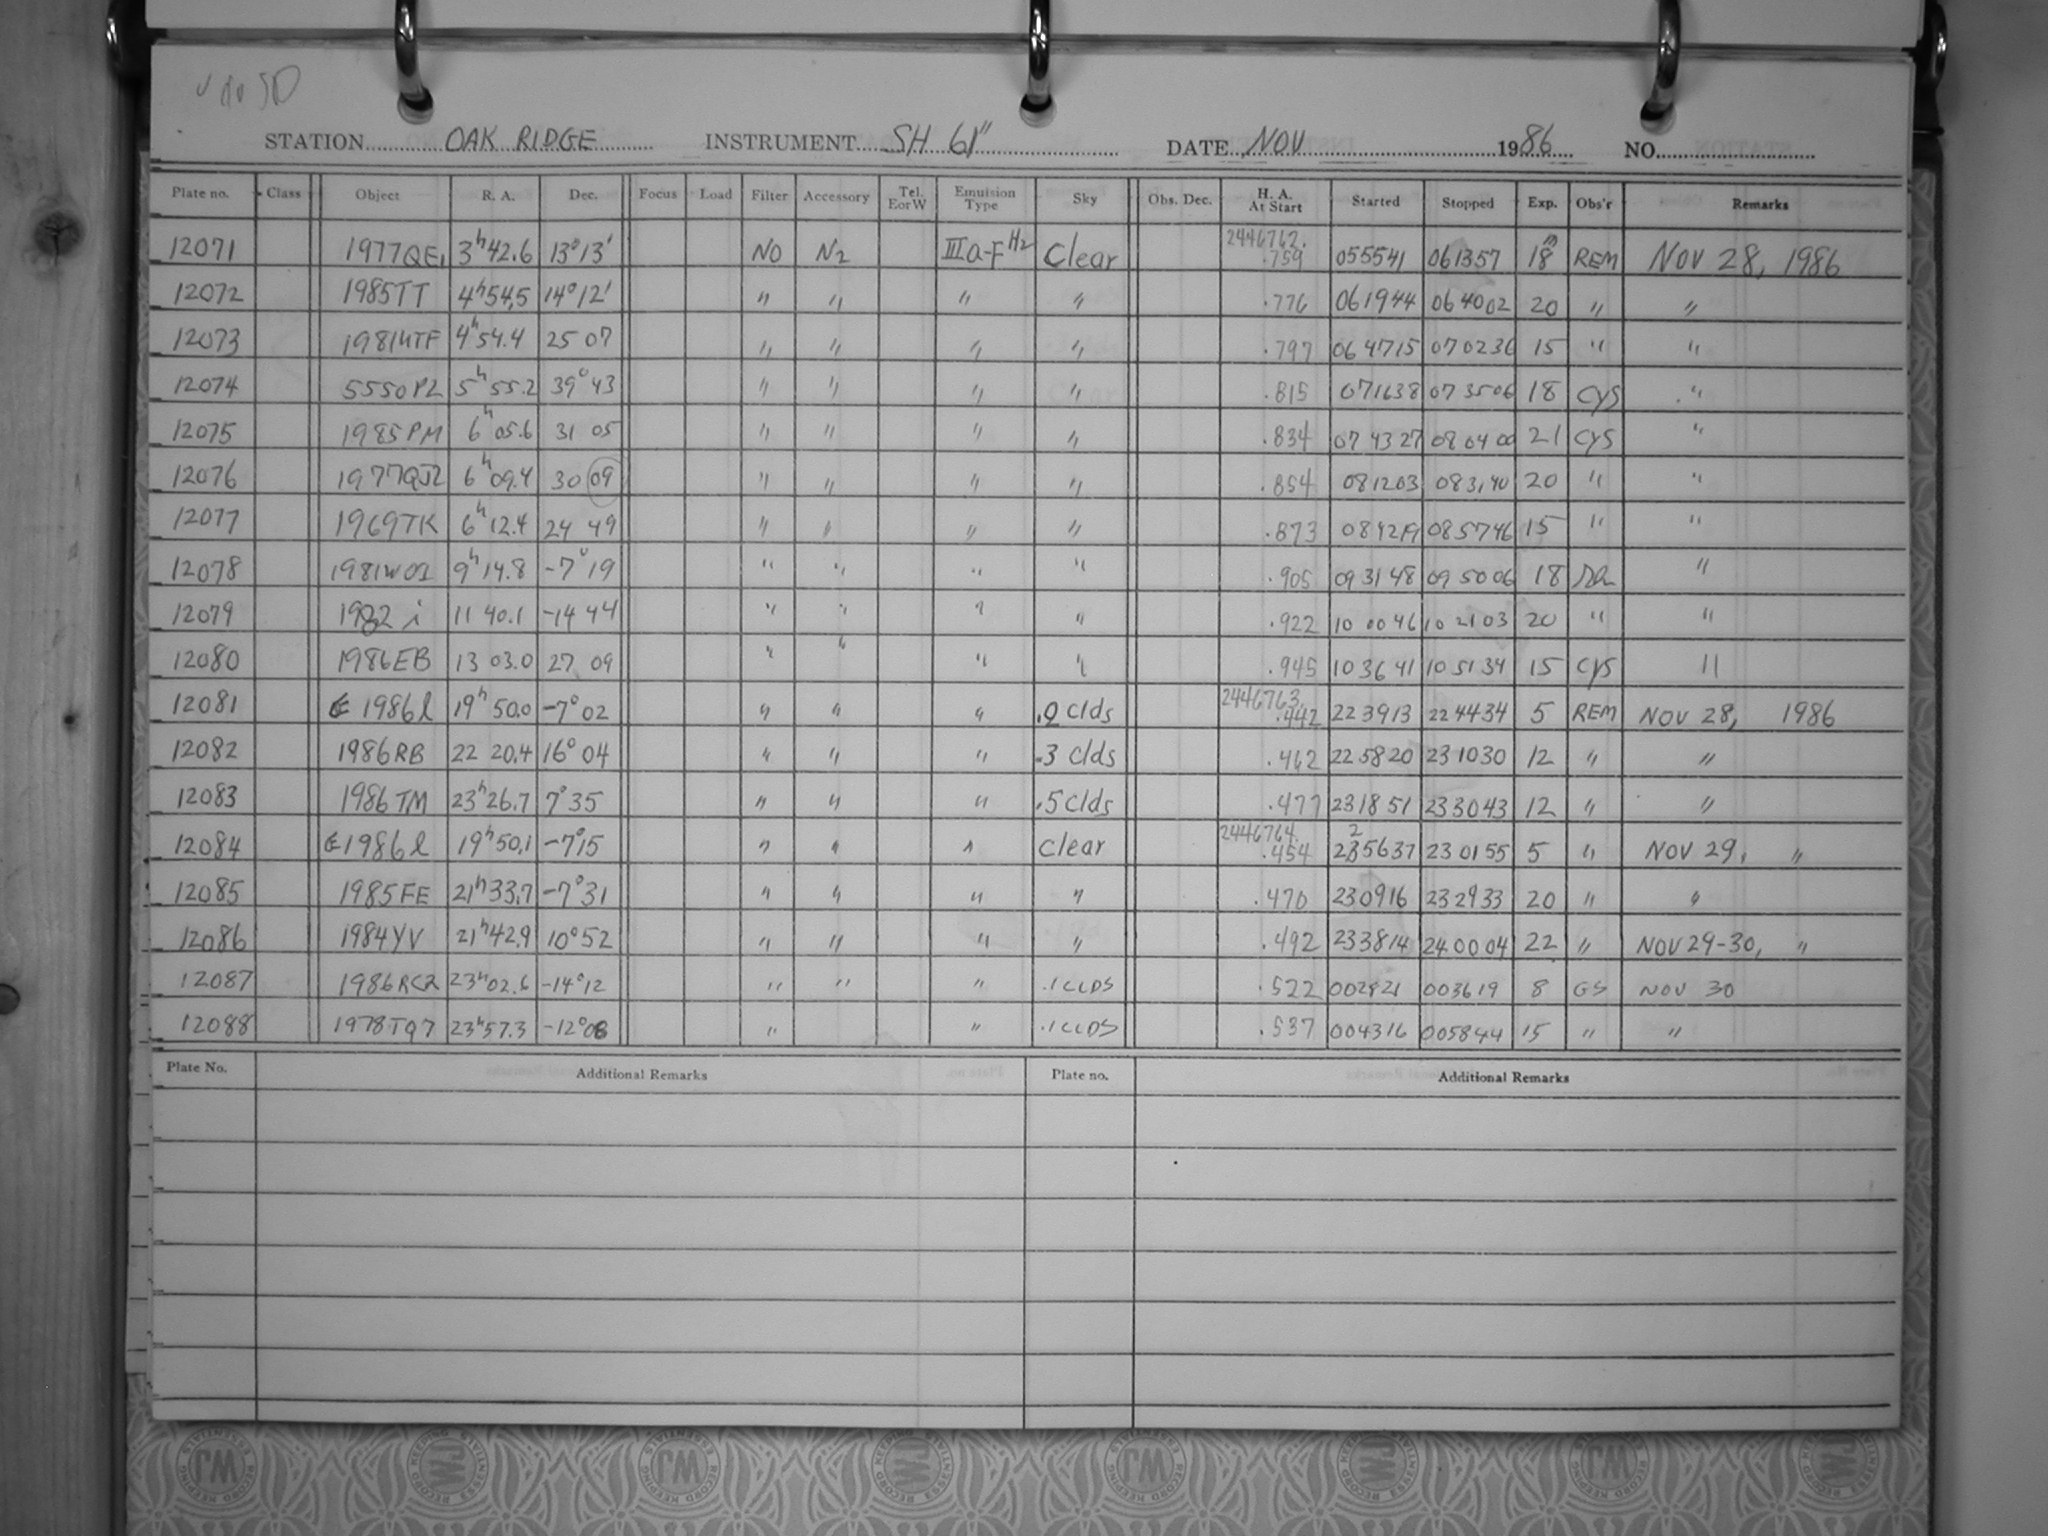 STATION OAK RIDGE INSTRUMENT SH 61" DATE NOV 1986 NO.
Plate no. Class Object R. A. Dec. Focus Load Filter Accessory Tel. EorW Emulsion Type Sky Obs. Dec. H. A. At Start Started Stopped Exp. Obs'r Remarks
12071 1977QE1 3h42.6 13°13' NO N2 IIIa-F H2 Clear 2446762. .759 055541 061357 18m REM NOV 28, 1986
12072 1985TT 4h54.5 14°12' " " " " .776 061944 064002 20 " "
12073 1981UTF 4h54.4 25 07 " " " " .797 064715 070236 15 " "
12074 5550PL 5h55.2 39°43 " " " " .815 071638 073506 18 CYS "
12075 1985PM 6h05.6 31 05 " " " " .834 074327 080400 21 CYS "
12076 1977QJ2 6h09.4 30 09 " " " " .854 081203 083140 20 " "
12077 1969TK 6h12.4 24 49 " " " " .873 084219 085746 15 " "
12078 1981WO1 9h14.8 -7°19 " " " " .905 093148 095006 18 "
12079 1982 i 11 40.1 -14 44 " " " " .922 100046 102103 20 " "
12080 1986EB 13 03.0 27 09 " " " " .945 103641 105134 15 CYS "
12081 1986l 19h50.0 -7°02 " " " .2 clds 2446763. .442 223913 224434 5 REM NOV 28, 1986
12082 1986RB 22 20.4 16°04 " " " .3 clds .462 225820 231030 12 " "
12083 1986TM 23h26.7 7°35 " " " .5 clds .477 231851 233043 12 " "
12084 1986l 19h50.1 -7°15 " " " Clear 2446764. .454 225637 230155 5 " NOV 29, "
12085 1985FE 21h33.7 -7°31 " " " " .470 230916 232933 20 " "
12086 1984YV 21h42.9 10°52 " " " " .492 233814 240004 22 " NOV 29-30, "
12087 1986RC2 23h02.6 -14°12 " " " .1 CLDS .522 002821 003619 8 GS NOV 30
12088 1978TQ7 23h57.3 -12°08 " " .1 CLDS .537 004316 005844 15 " "
Plate No. Additional Remarks Plate no. Additional Remarks